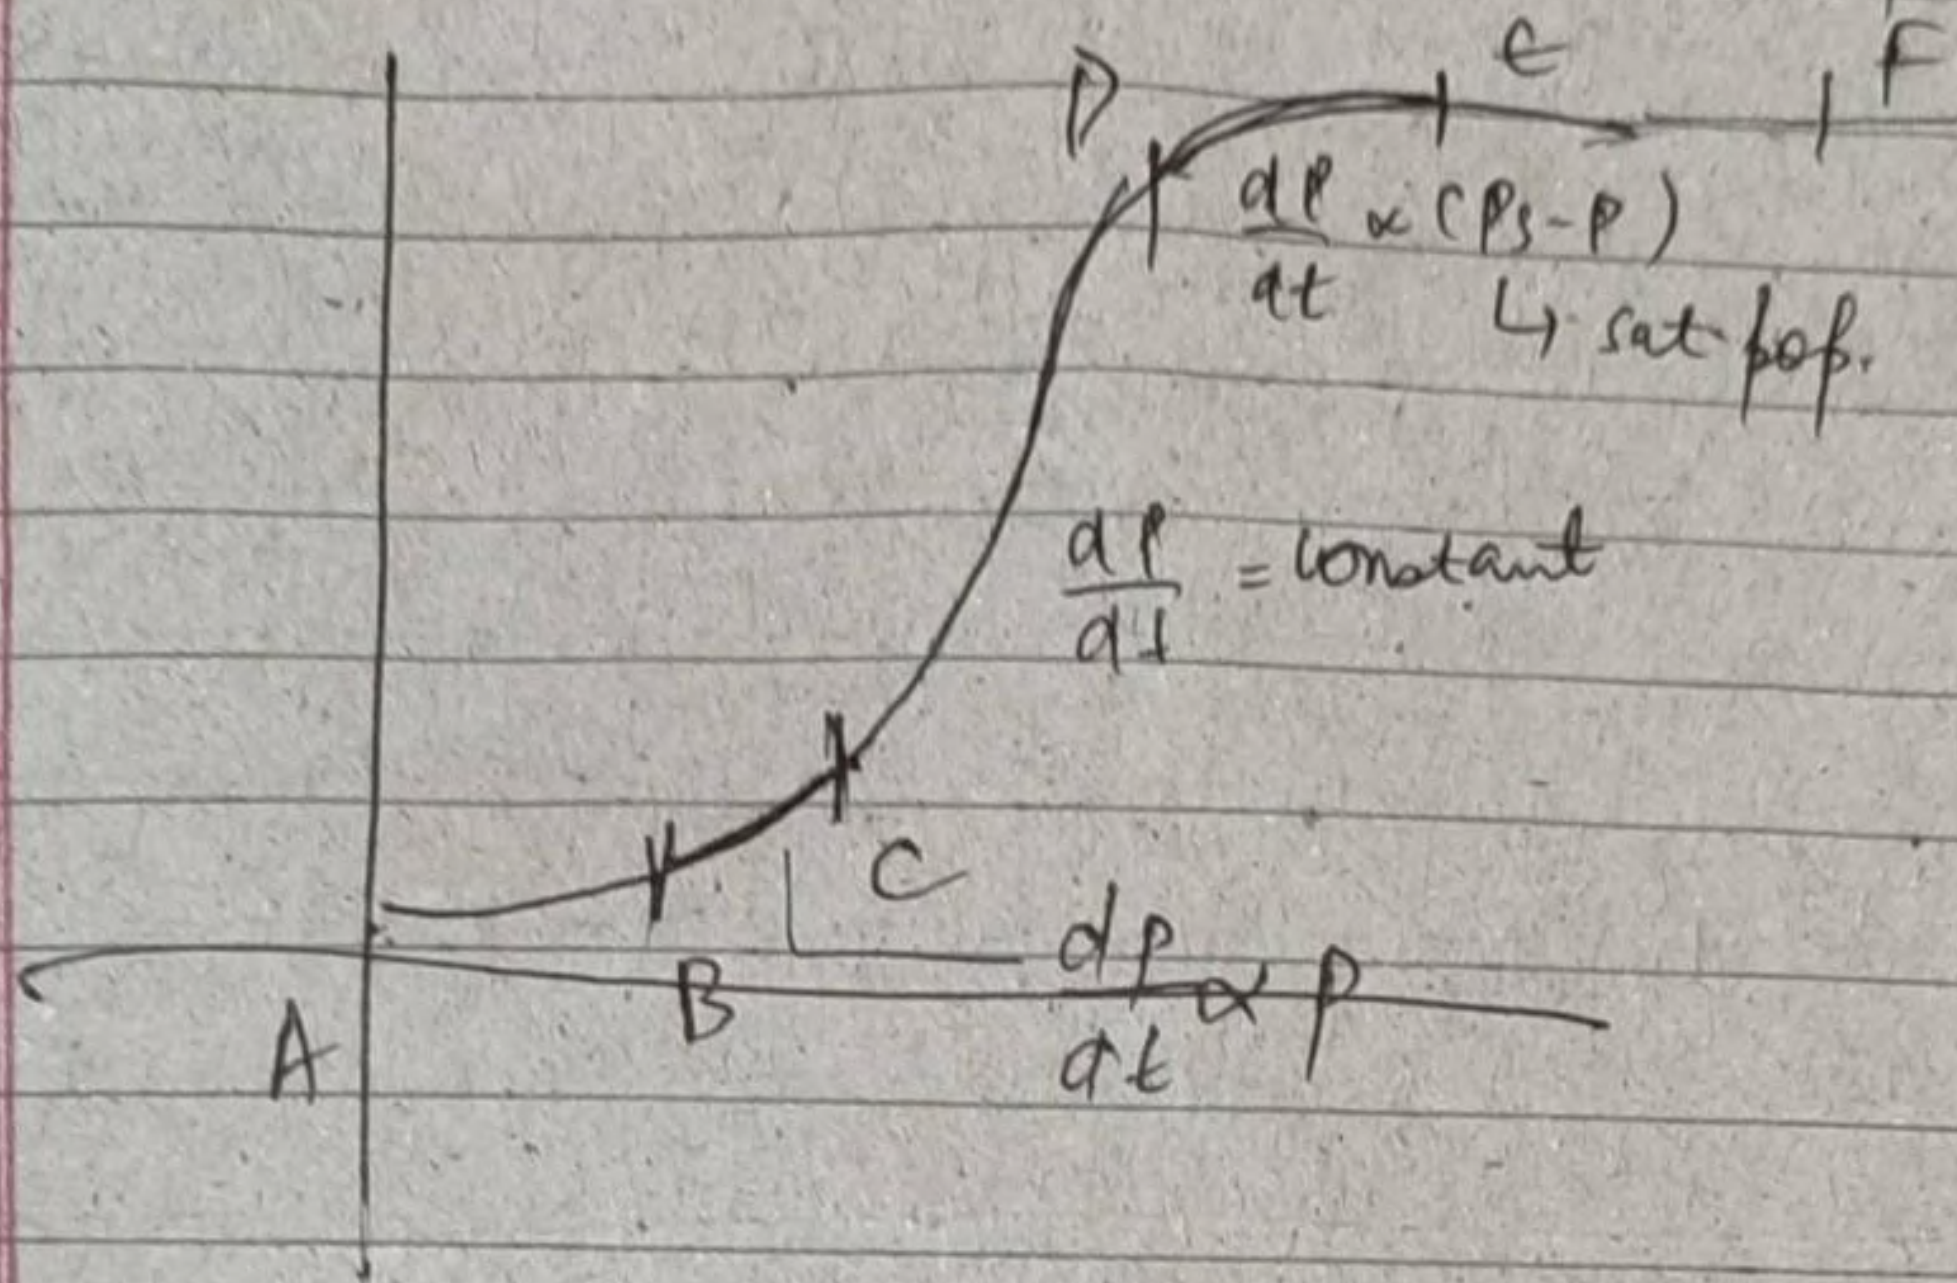 D E F
dP/dt ∝ (Ps-P)
↳ sat pop.
dP/dt = constant
C
A B dP/dt ∝ P